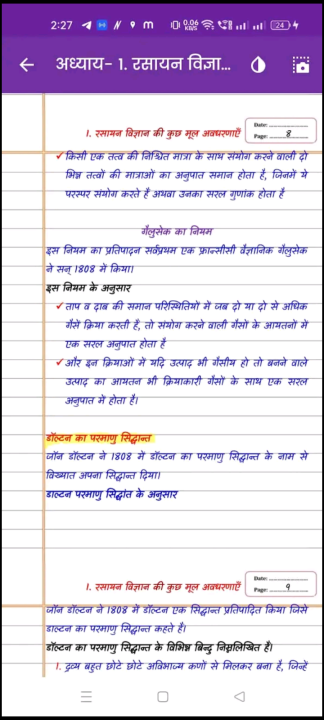 2:27
0.06 KB/S
24
अध्याय- 1. रसायन विज्ञा...
Date:
1. रसायन विज्ञान की कुछ मूल अवधरणाएँ
Page: 8
✓ किसी एक तत्व की निश्चित मात्रा के साथ संयोग करने वाली दो
भिन्न तत्वों की मात्राओं का अनुपात समान होता है, जिनमें ये
परस्पर संयोग करते हैं अथवा उनका सरल गुणांक होता है
गैलुसेक का नियम
इस नियम का प्रतिपादन सर्वप्रथम एक फ्रान्सीसी वैज्ञानिक गैलुसेक
ने सन् 1808 में किया।
इस नियम के अनुसार
✓ ताप व दाब की समान परिस्थितियों में जब दो या दो से अधिक
गैसें क्रिया करती हैं, तो संयोग करने वाली गैसों के आयतनों में
एक सरल अनुपात होता है
✓ और इन क्रियाओं में यदि उत्पाद भी गैसीय हो तो बनने वाले
उत्पाद का आयतन भी क्रियाकारी गैसों के साथ एक सरल
अनुपात में होता है।
डॉल्टन का परमाणु सिद्धान्त
जॉन डॉल्टन ने 1808 में डॉल्टन का परमाणु सिद्धान्त के नाम से
विख्यात अपना सिद्धान्त दिया।
डाल्टन परमाणु सिद्धांत के अनुसार
Date:
1. रसायन विज्ञान की कुछ मूल अवधरणाएँ
Page: 9
जॉन डॉल्टन ने 1808 में डॉल्टन एक सिद्धान्त प्रतिपादित किया जिसे
डाल्टन का परमाणु सिद्धान्त कहते हैं।
डॉल्टन का परमाणु सिद्धान्त के विभिन्न बिन्दु निम्नलिखित है।
1. द्रव्य बहुत छोटे छोटे अविभाज्य कणों से मिलकर बना है, जिन्हें